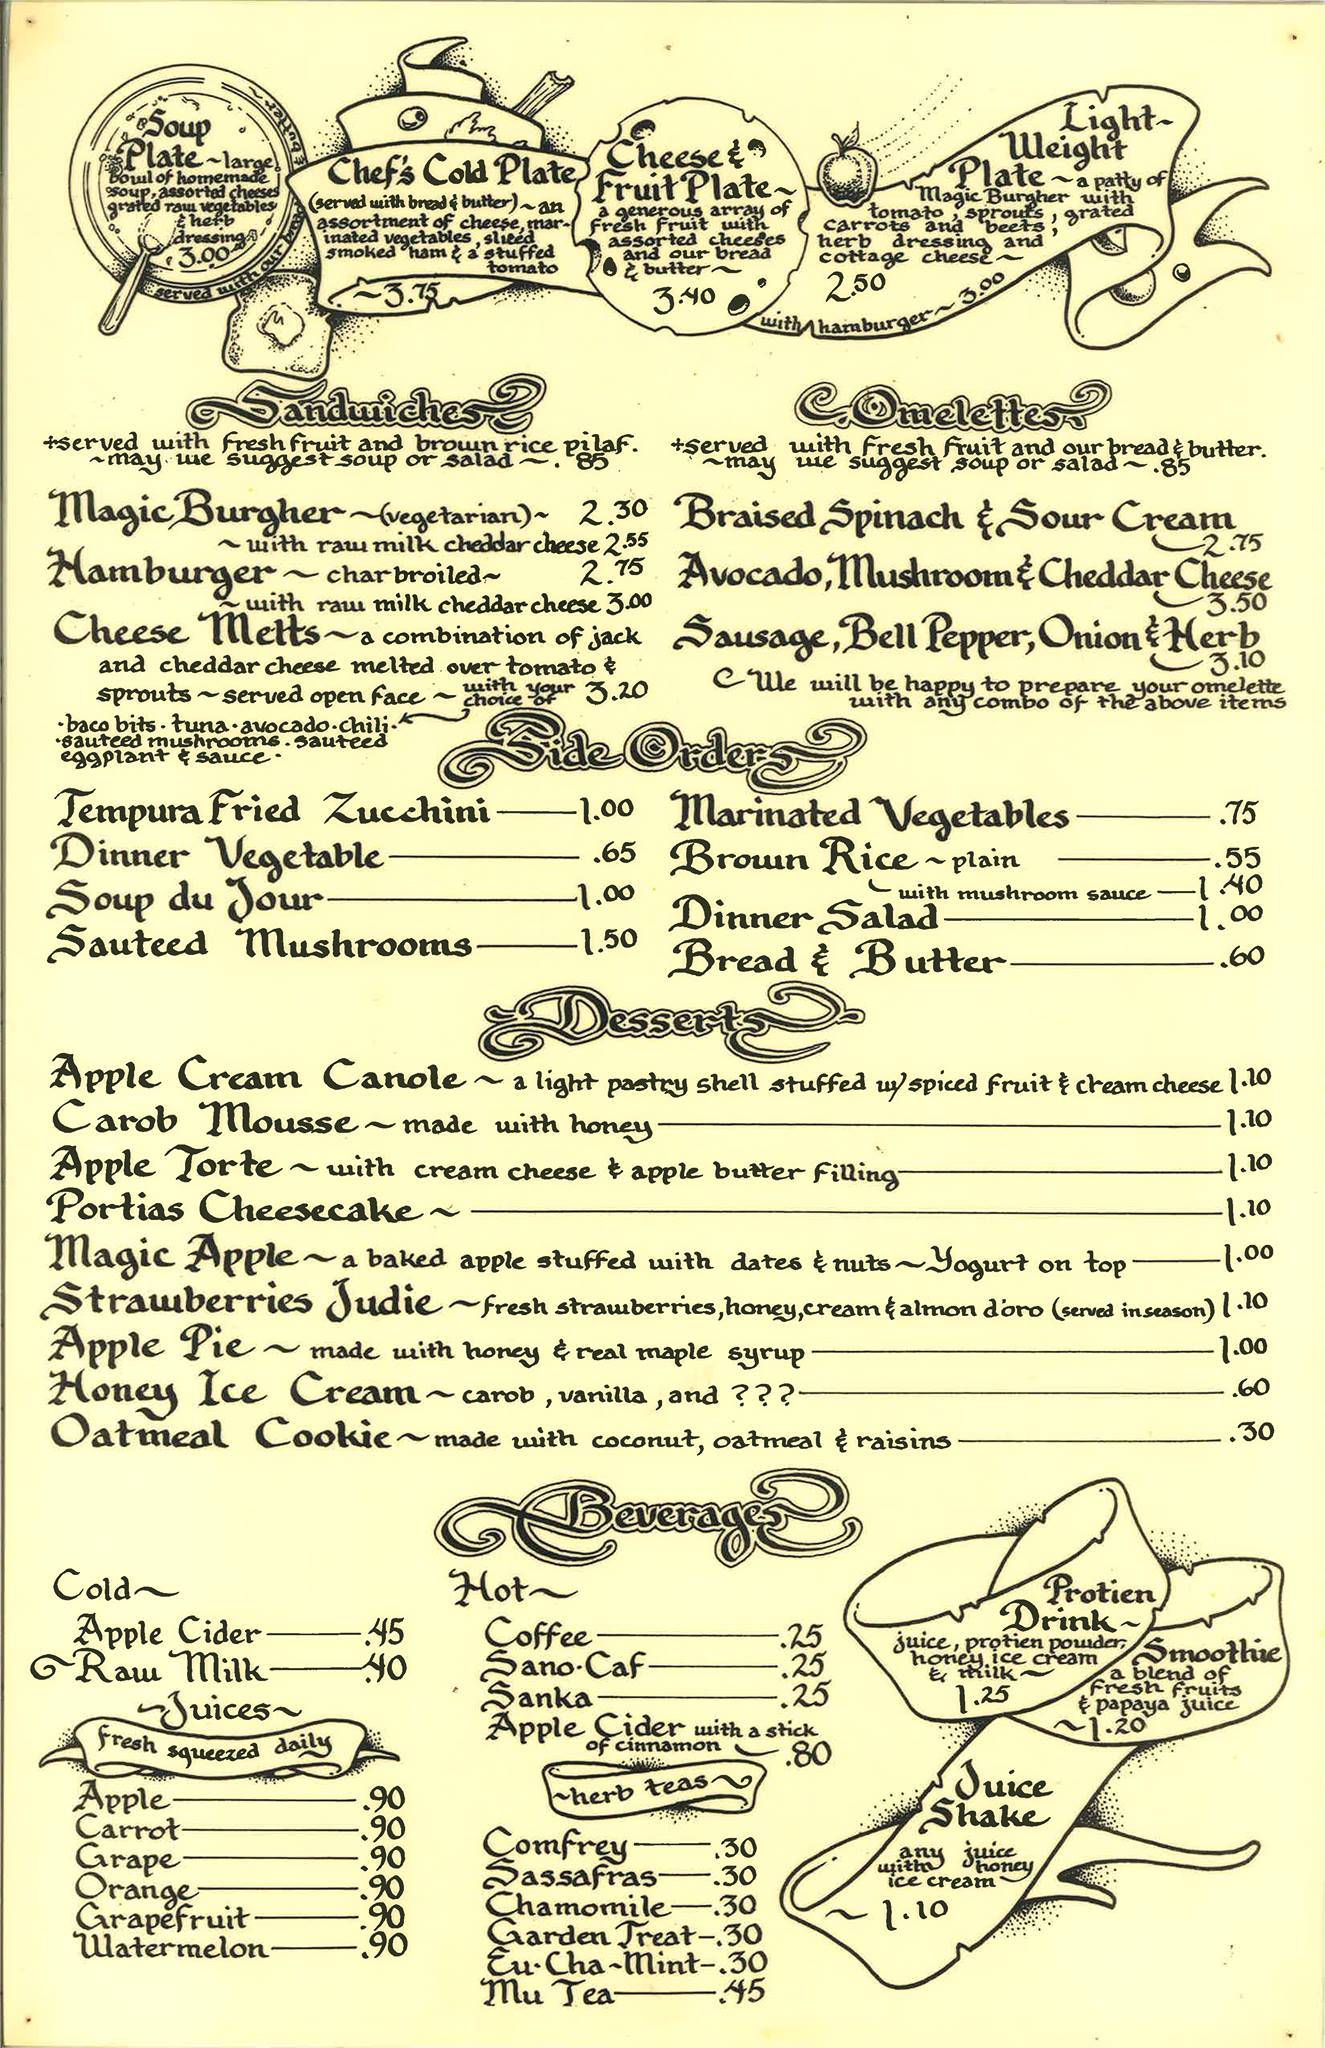 Soup
Plate ~ large
bowl of homemade
soup, assorted cheeses
grated raw vegetables
& herb
dressing
3.00
served with our bread & butter ~
Chef's Cold Plate
(served with bread & butter) ~ an
assortment of cheese, mar-
inated vegetables, sliced
smoked ham & a stuffed
tomato
~3.75
Cheese &
Fruit Plate ~
a generous array of
fresh fruit with
assorted cheeses
and our bread
& butter ~
3.40
Light-
Weight
Plate ~ a patty of
Magic Burgher with
tomato, sprouts, grated
carrots and beets,
herb dressing and
cottage cheese ~
2.50
with hamburger ~ 3.00
Sandwiches
+served with fresh fruit and brown rice pilaf.
~may we suggest soup or salad ~ .85
Magic Burgher ~ (vegetarian) ~ 2.30
~ with raw milk cheddar cheese 2.55
Hamburger ~ charbroiled ~ 2.75
~ with raw milk cheddar cheese 3.00
Cheese Melts ~ a combination of jack
and cheddar cheese melted over tomato &
sprouts ~ served open face ~ with your choice of 3.20
·baco bits · tuna · avocado · chili ·
·sauteed mushrooms · sauteed
eggplant & sauce ·
Omelettes
+served with fresh fruit and our bread & butter.
~may we suggest soup or salad ~ .85
Braised Spinach & Sour Cream
2.75
Avocado, Mushroom & Cheddar Cheese
3.50
Sausage, Bell Pepper, Onion & Herb
3.10
We will be happy to prepare your omelette
with any combo of the above items
Side Orders
Tempura Fried Zucchini 1.00
Dinner Vegetable .65
Soup du Jour 1.00
Sauteed Mushrooms 1.50
Marinated Vegetables .75
Brown Rice ~ plain .55
with mushroom sauce 1.40
Dinner Salad 1.00
Bread & Butter .60
Desserts
Apple Cream Canole ~ a light pastry shell stuffed w/spiced fruit & cream cheese 1.10
Carob Mousse ~ made with honey 1.10
Apple Torte ~ with cream cheese & apple butter filling 1.10
Portias Cheesecake ~ 1.10
Magic Apple ~ a baked apple stuffed with dates & nuts ~ Yogurt on top 1.00
Strawberries Judie ~ fresh strawberries, honey, cream & almon d'oro (served in season) 1.10
Apple Pie ~ made with honey & real maple syrup 1.00
Honey Ice Cream ~ carob, vanilla, and ??? .60
Oatmeal Cookie ~ made with coconut, oatmeal & raisins .30
Beverages
Cold ~
Apple Cider .45
Raw Milk .40
~Juices~
fresh squeezed daily
Apple .90
Carrot .90
Grape .90
Orange .90
Grapefruit .90
Watermelon .90
Hot ~
Coffee .25
Sano-Caf .25
Sanka .25
Apple Cider with a stick
of cinnamon .80
~herb teas~
Comfrey .30
Sassafras .30
Chamomile .30
Garden Treat .30
Eu-Cha-Mint .30
Mu Tea .45
Protien
Drink ~
juice, protien powder,
honey ice cream
& milk ~
1.25
Smoothie
a blend of
fresh fruits
& papaya juice
~1.20
Juice
Shake
any juice
with honey
ice cream ~
~ 1.10